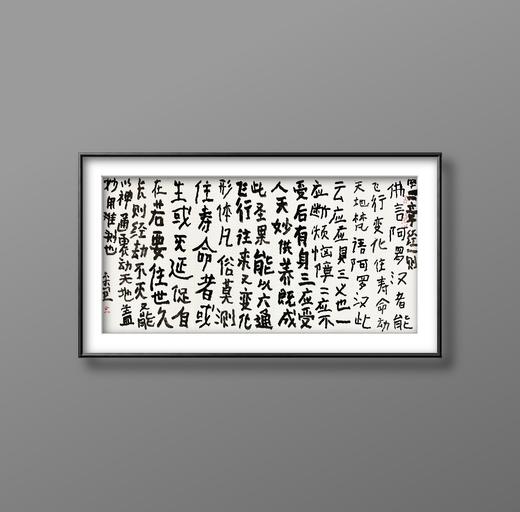 四十二章经一则
佛言阿罗汉者能
飞行变化住寿命动
天地梵语阿罗汉此
云应应具三义也一
应断烦恼障二应不
受后有身三应受
人天妙供养既成
此圣果能以六通
飞行往来之变化
形体凡俗莫测
住寿命者或
生或夭延促自
在若要住世久
长则经劫不灭又能
以神通震动天地盖
妙用难测也